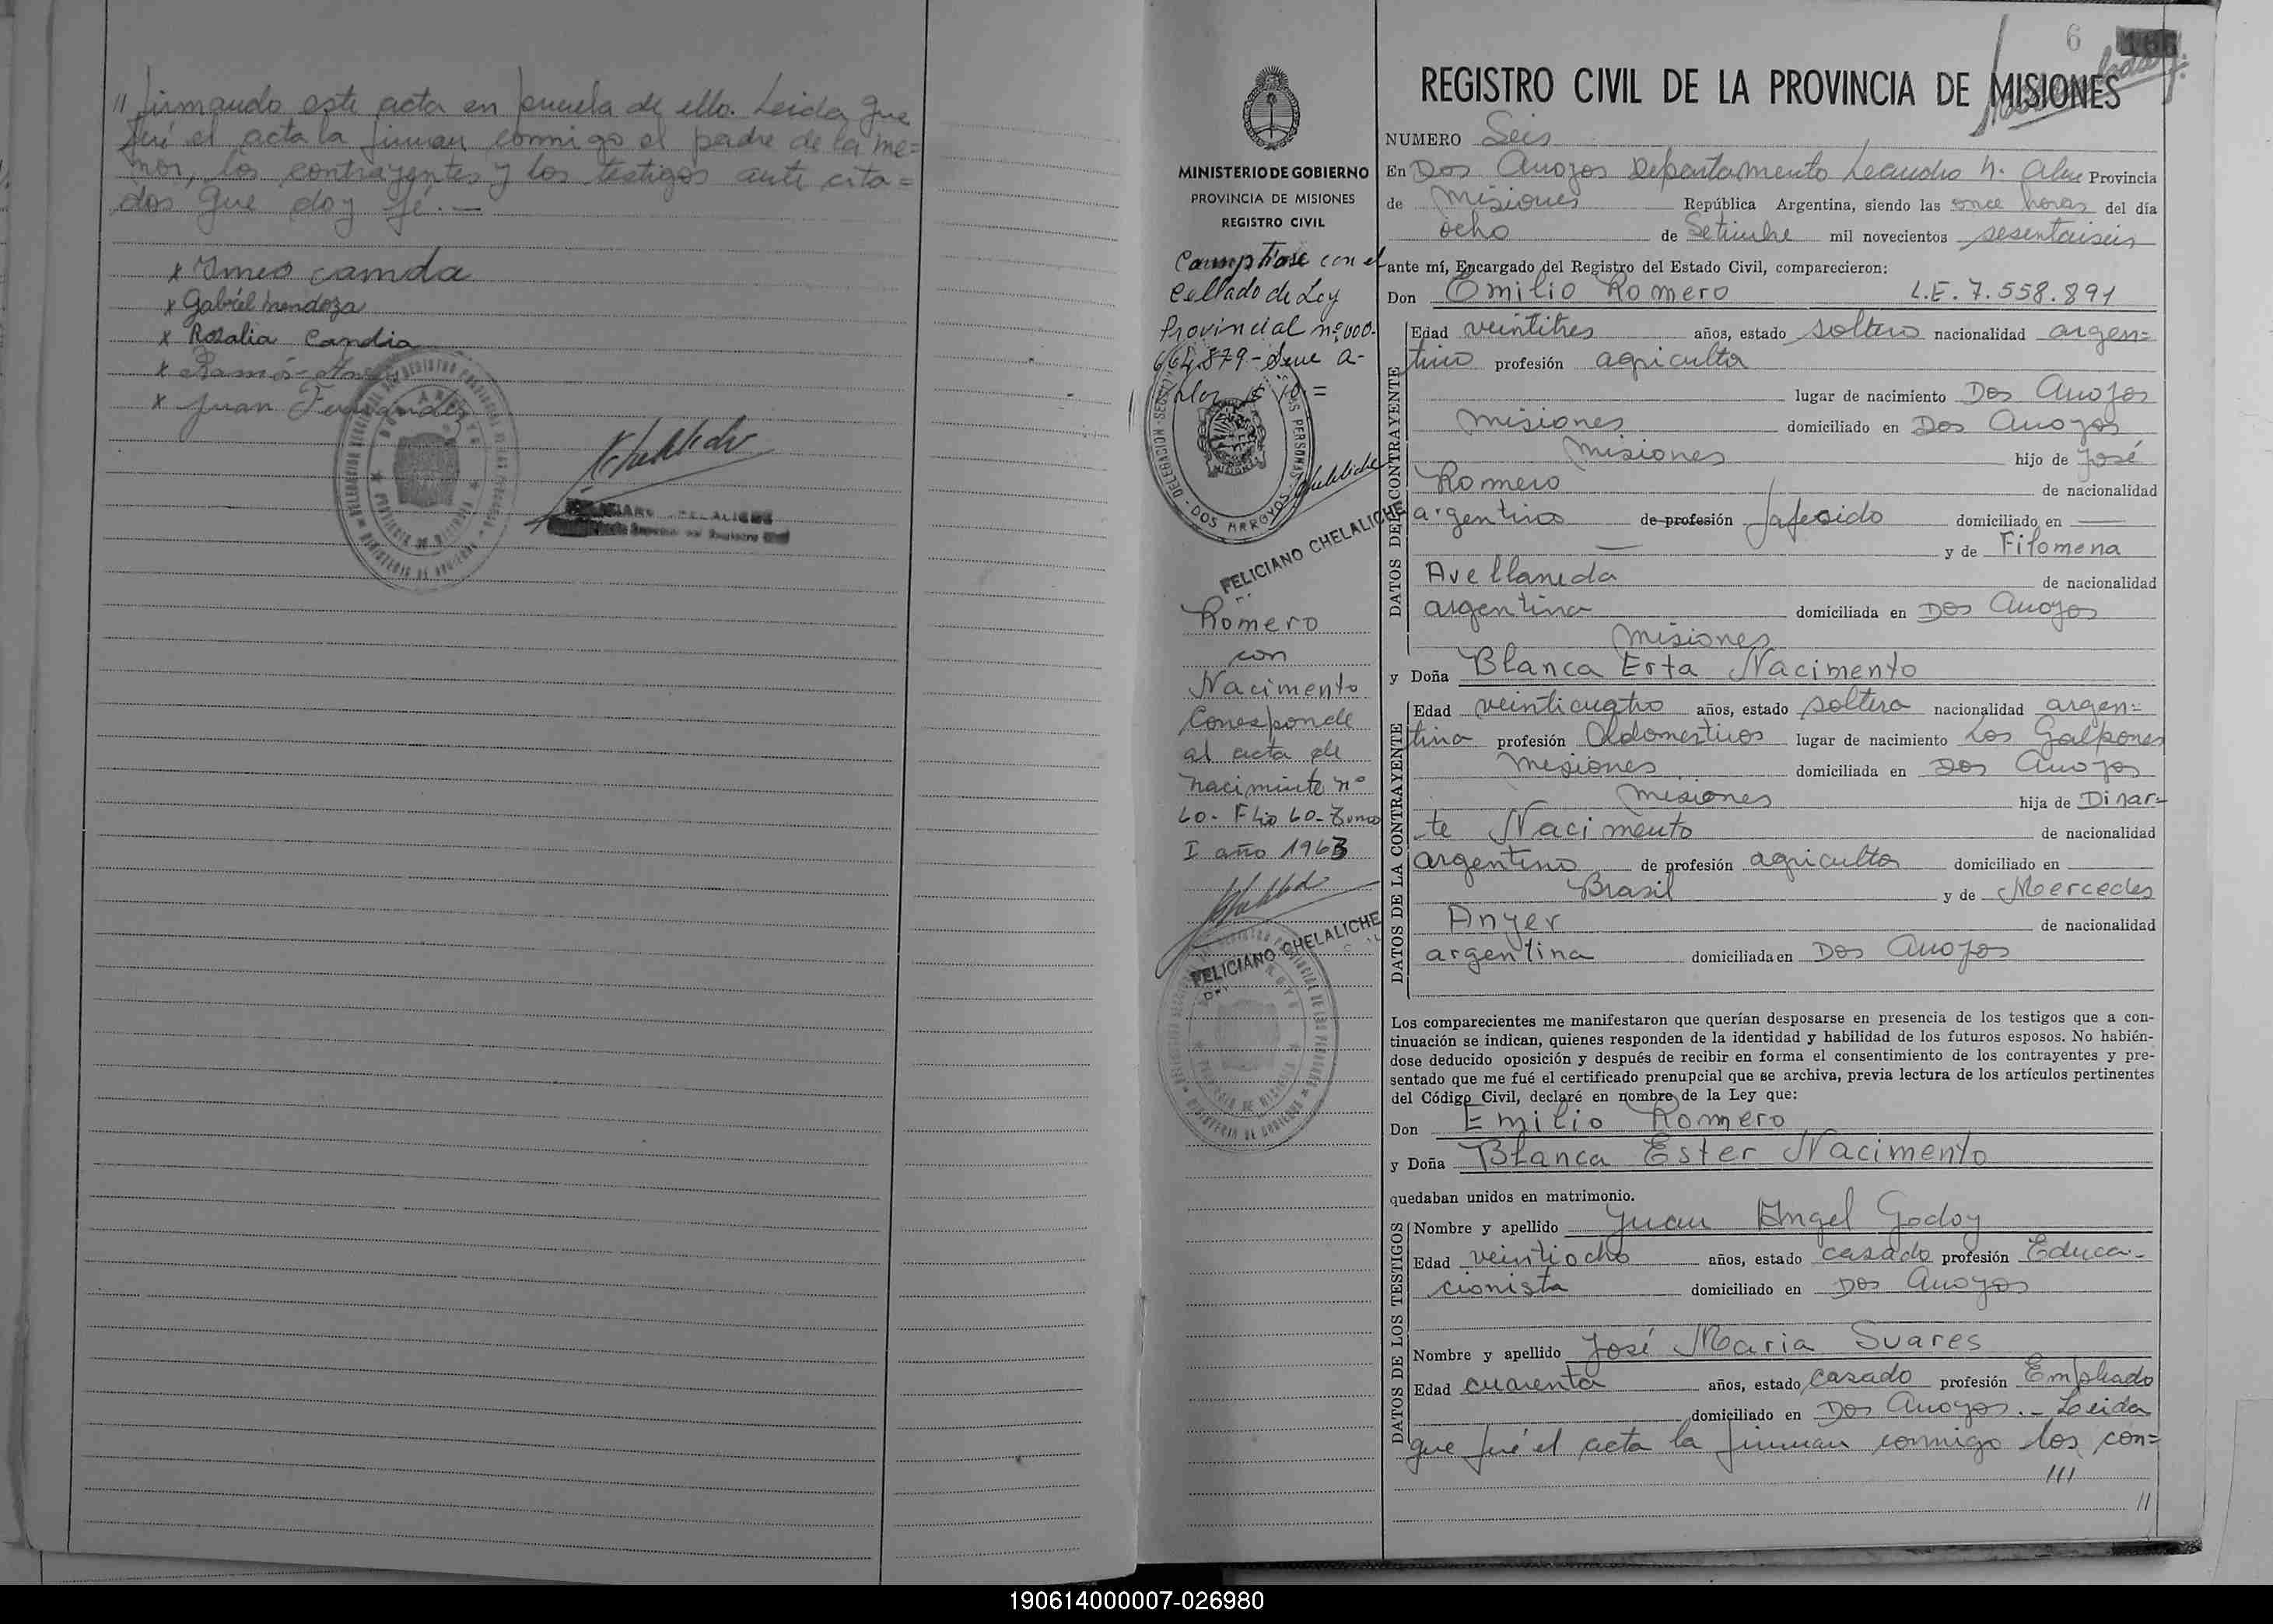 " firmando este acta en prueba de ello. Leida que
fué el acta la firman conmigo el padre de la me=
nor, los contrayentes y los testigos ante cita=
dos que doy fé.—
x Gabriel Mendoza
x Rosalia Candia
x Ramón
x Juan Fernandez
6
REGISTRO CIVIL DE LA PROVINCIA DE MISIONES
MINISTERIO DE GOBIERNO
PROVINCIA DE MISIONES
REGISTRO CIVIL
Cumplióse con el
sellado de Ley
Provincial nº 000.
664.879-
DOS ARROYOS
FELICIANO CHELALICHE
Romero
con
Nacimento
Corresponde
al acta de
nacimiento nº
60- Flio 60- Tomo
I año 1963
FELICIANO CHELALICHE
NUMERO Seis
En Dos Arroyos Departamento Leandro N. Alem Provincia
de Misiones República Argentina, siendo las once horas del día
ocho de Setiembre mil novecientos sesentaiseis
ante mí, Encargado del Registro del Estado Civil, comparecieron:
Don Emilio Romero L.E. 7.558.891
DATOS DEL CONTRAYENTE
Edad veintitres años, estado soltero nacionalidad argen=
tino profesión agricultor
lugar de nacimiento Dos Arroyos
Misiones domiciliado en Dos Arroyos
Misiones hijo de José
Romero de nacionalidad
argentino de profesión fallecido domiciliado en —
— y de Filomena
Avellaneda de nacionalidad
argentina domiciliada en Dos Arroyos
Misiones
y Doña Blanca Erta Nacimento
DATOS DE LA CONTRAYENTE
Edad veinticuatro años, estado soltera nacionalidad argen=
tina profesión Qdomesticos lugar de nacimiento Los Galpones
Misiones domiciliada en Dos Arroyos
Misiones hija de Dinar=
te Nacimento de nacionalidad
argentino de profesión agricultor domiciliado en
Brasil y de Mercedes
Anyer de nacionalidad
argentina domiciliada en Dos Arroyos
Los comparecientes me manifestaron que querían desposarse en presencia de los testigos que a con-
tinuación se indican, quienes responden de la identidad y habilidad de los futuros esposos. No habién-
dose deducido oposición y después de recibir en forma el consentimiento de los contrayentes y pre-
sentado que me fué el certificado prenupcial que se archiva, previa lectura de los artículos pertinentes
del Código Civil, declaré en nombre de la Ley que:
Don Emilio Romero
y Doña Blanca Ester Nacimento
quedaban unidos en matrimonio.
DATOS DE LOS TESTIGOS
Nombre y apellido Juan Angel Godoy
Edad veintiocho años, estado casado profesión Educa-
cionista domiciliado en Dos Arroyos
Nombre y apellido José Maria Suares
Edad cuarenta años, estado casado profesión Empleado
domiciliado en Dos Arroyos.- Leida
que fué el acta la firman conmigo los con=
///
//
190614000007-026980